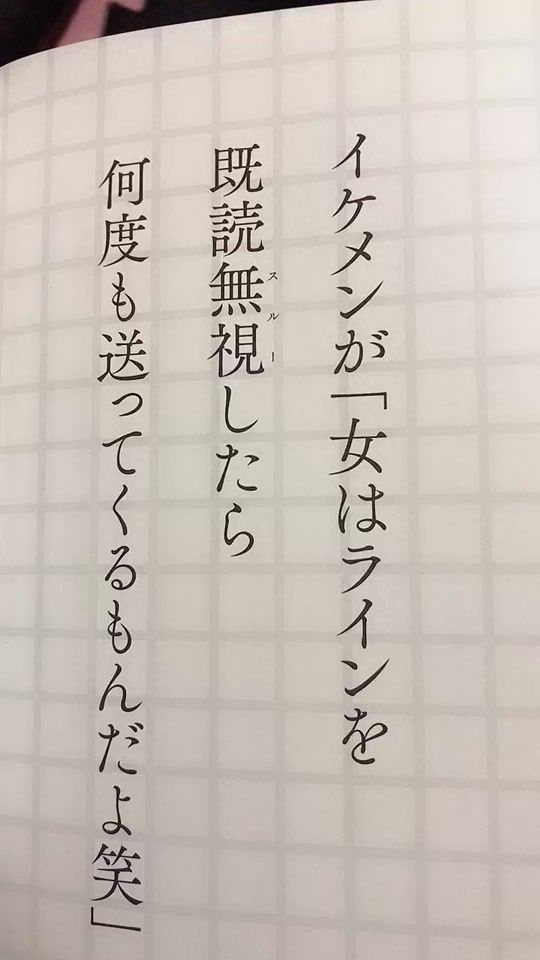 イケメンが「女はラインを
既読無視したら
スルー
何度も送ってくるもんだよ笑」